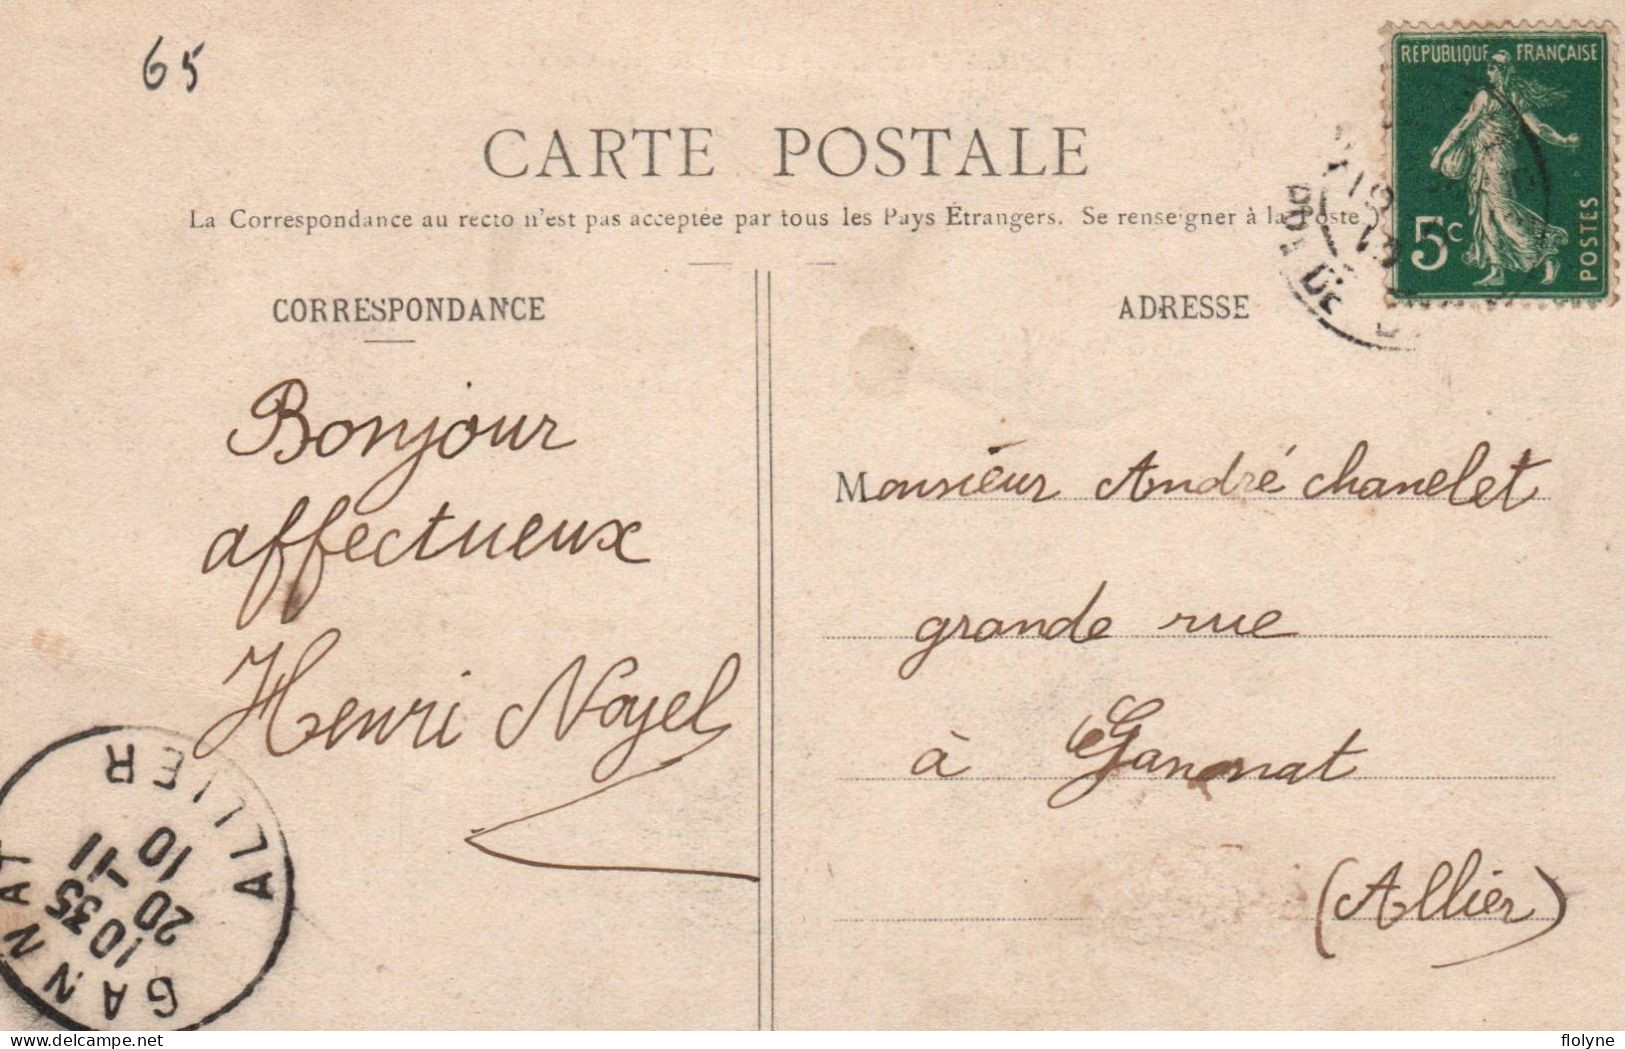 65
REPUBLIQUE FRANÇAISE
5c
POSTES
CARTE POSTALE
La Correspondance au recto n'est pas acceptée par tous les Pays Étrangers. Se renseigner à la Poste.
CORRESPONDANCE
ADRESSE
Bonjour
affectueux
Henri Noyel
Monsieur André Chanelet
grande rue
à Gannat
(Allier)
GANNAT
ALLIER
10 35
20 -11
10
delcampe.net
flolyne